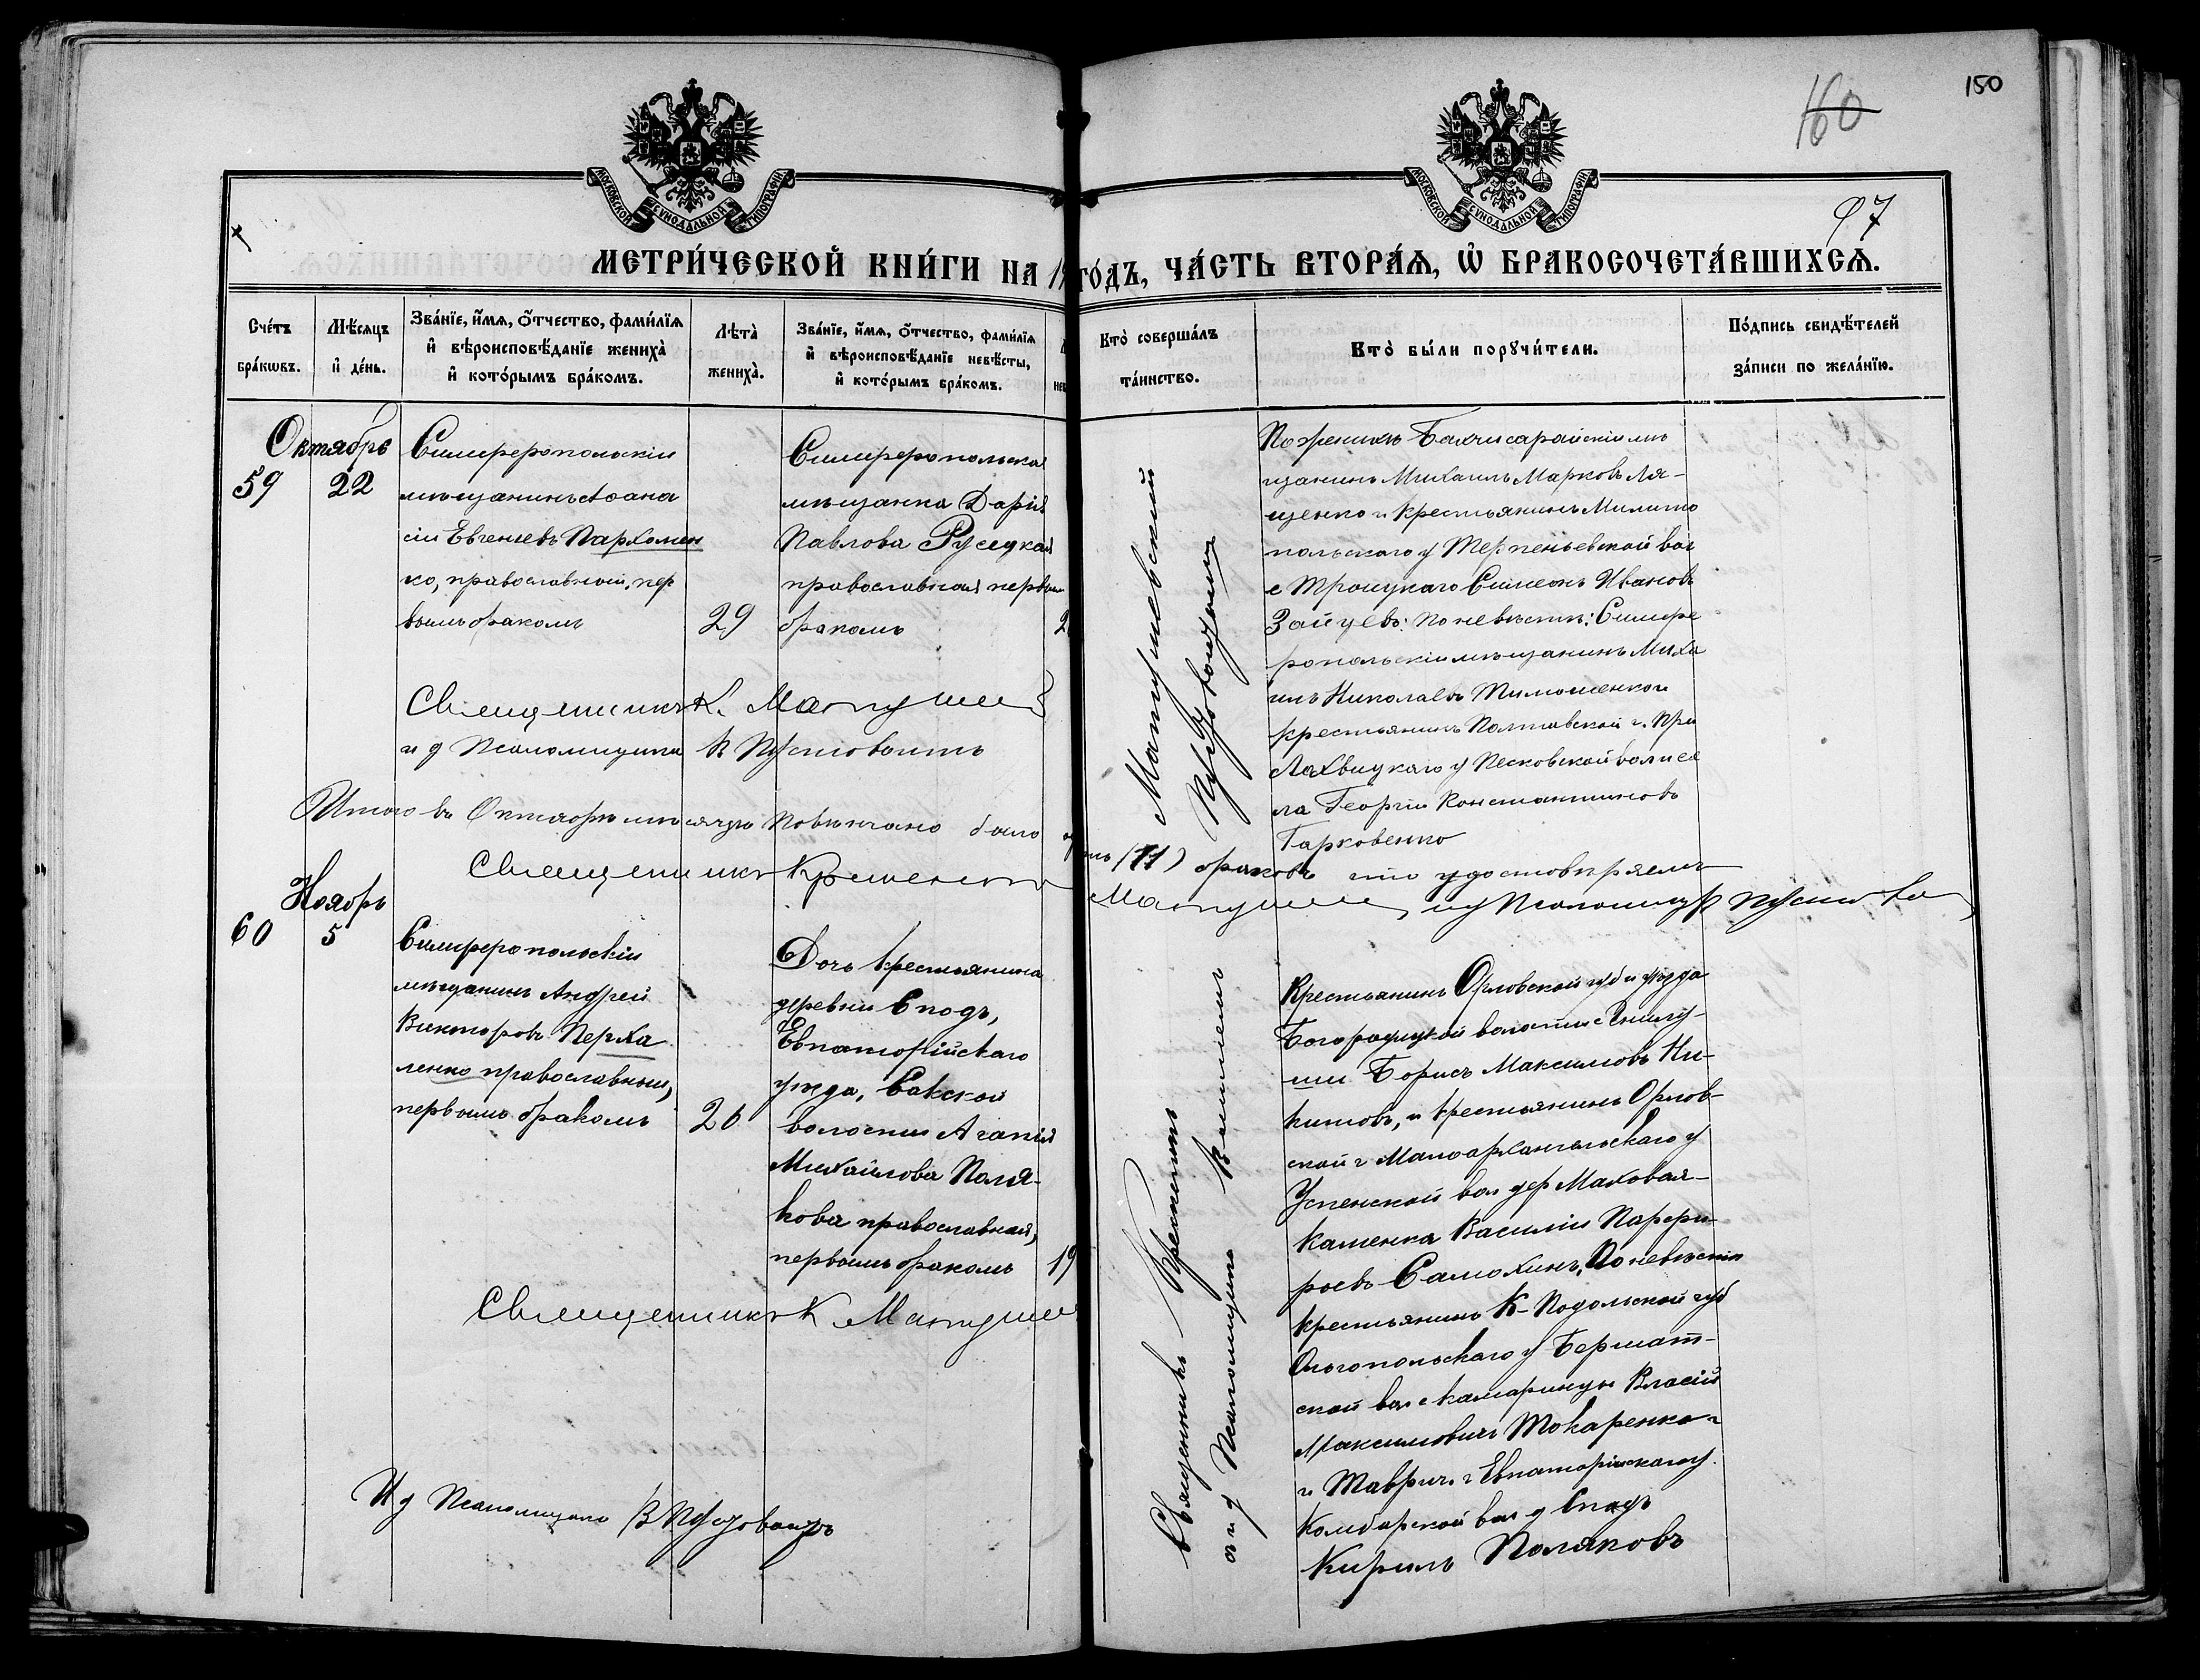 160
150
97
МОСКОВСКОЙ СѴНОДАЛЬНОЙ ТИПОГРАФІИ
МОСКОВСКОЙ СѴНОДАЛЬНОЙ ТИПОГРАФІИ
МЕТРИ́ЧЕСКОЙ КНИ́ГИ НА 19 ГО́ДЪ, ЧА́СТЬ ВТОРА́Ѧ, Ѡ҆ БРАКОСОЧЕТА́ВШИХСѦ.
Сче́тъ
бра́кѡвъ.
Мѣ́сѧцъ
и҆ де́нь.
Зва́нїе, и҆́мѧ, ѻ҆́тчество, фами́лїѧ
и҆ вѣроисповѣ́данїе жениха̀
и҆ кото́рымъ бра́комъ.
Лѣта̀
жениха̀.
Зва́нїе, и҆́мѧ, ѻ҆́тчество, фами́лїѧ
и҆ вѣроисповѣ́данїе невѣ́сты,
и҆ кото́рымъ бра́комъ.
Кто̀ соверша́лъ
та́инство.
Кто̀ бы́ли порꙋчи́тели.
По́дпись свидѣ́телей
за́писи по жела́нїю.
Октябрь
59
22
Симферопольскій
мѣщанинъ Аѳана
сій Евгеніевъ Пархомен
ко, православный, пер
вымъ бракомъ
29
Симферопольская
мѣщанка Дарія
Павлова Русецкая
православная первымъ
бракомъ
2
Матушевский
Пустовойтъ
По женихѣ Бахчисарайскій мѣ
щанинъ Михаилъ Марковъ Ля-
щенко и крестьянинъ Мелито
польскаго у Терпеньевской вол
с Троицкаго Симеонъ Ивановъ
Зайцевъ: по невѣстѣ: Симфе
ропольскій мѣщанинъ Миха
илъ Николаевъ Тимошенко и
крестьянинъ Полтавской г.
Лохвицкаго у Песковской вол и се
ла Георгій Константиновъ
Тарковенко
Священникъ К. Матушев
и д Псаломщика В Пустовоитъ
Итого въ Октябрѣ мѣсяцѣ повѣнчано было
(11) браковъ что удостовѣряемъ
Священникъ Кременецкій
Матушев ид Псаломщ В Пустово
Ноябрь
60
5
Симферопольскій
мѣщанинъ Андрей
Викторовъ Перха
ленко православный,
первымъ бракомъ
26
Дочь крестьянина
деревни Споды,
Евпаторійскаго
уѣзда, Сакской
волости Агапія
Михайлова Поля-
кова православная,
первымъ бракомъ
19
Священникъ
и д Псаломщика
Крестьянинъ Орловской губ и уѣзда
Богородицкой волости с
Борисъ Максимовъ Ни-
китовъ, и крестьянинъ Орлов-
ской г Малоархангельскаго у
Успенской вол дер Маховая-
каменка Василій Парфи-
роевъ Самохинъ, По невѣстѣ
крестьянинъ К-Подольской губ
Ольгопольскаго у Бершат-
ской вол с Камаринцы Власій
Максимовичъ Токаренко и
и Таврич. г Евпаторійскаго у.
Комбарской вол д Споды
Кирилъ Поляковъ
Священникъ К Матушев
И д Псаломщика В Пустовоитъ